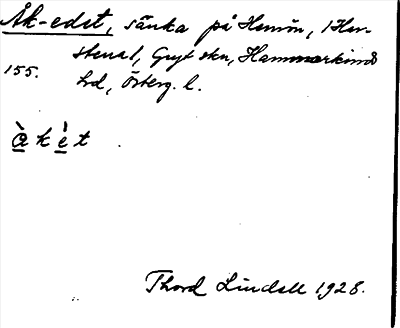 Åk-edet, sänka på Hemön, 1 Her-
stena1, Gryt skn, Hammarkinds
155. hd, Österg. l.
à k è t
Thord Lindell 1928.